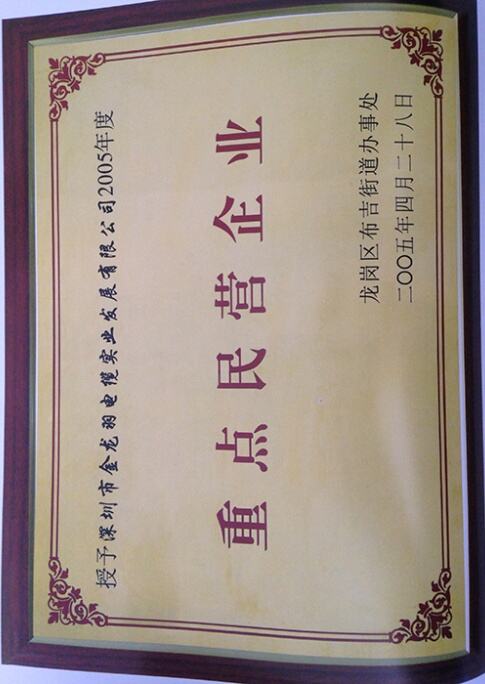 授予深圳市金龙羽电缆实业发展有限公司2005年度
重点民营企业
龙岗区布吉街道办事处
二〇〇五年四月二十八日